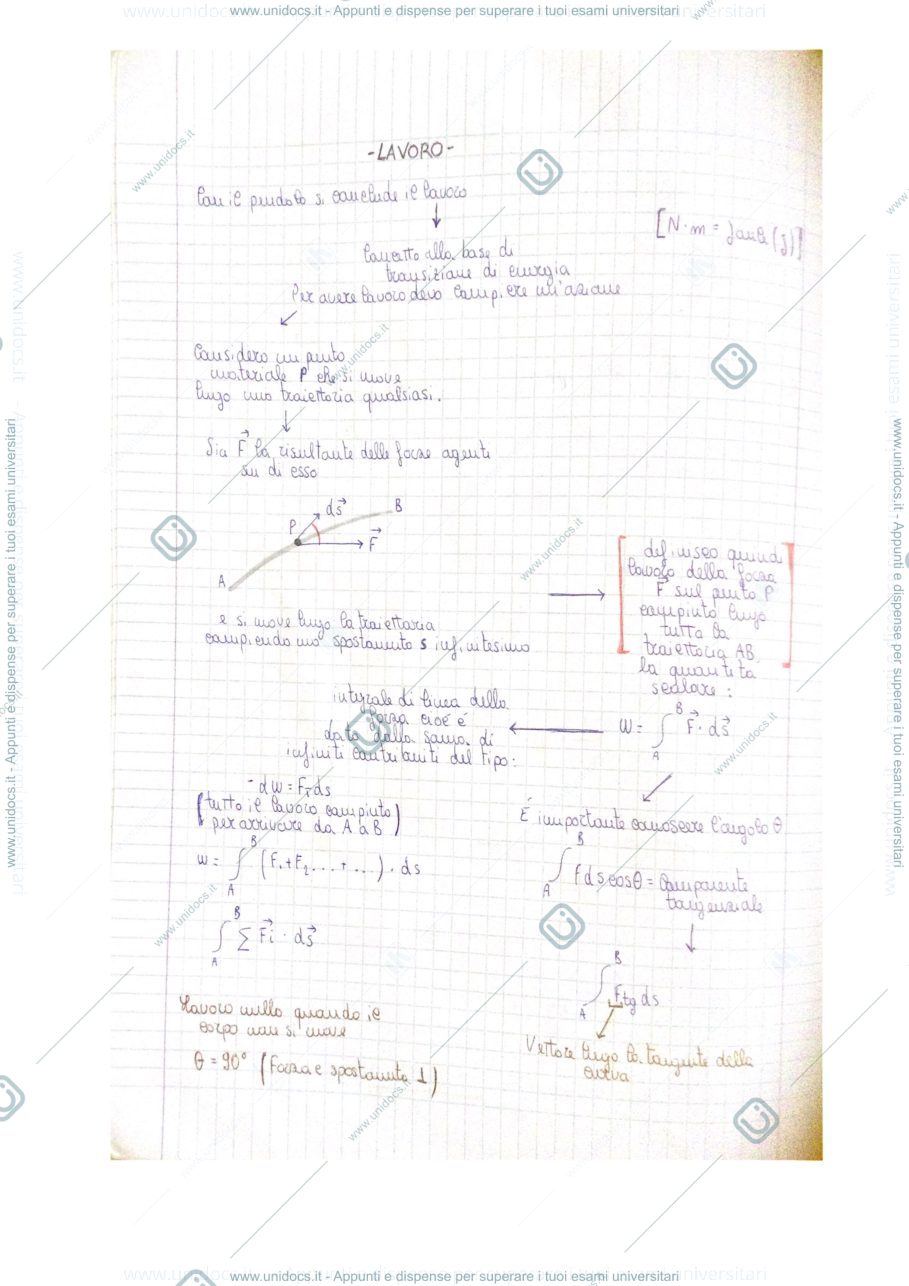 www.unidocs.it - Appunti e dispense per superare i tuoi esami universitari
-LAVORO-
Con il pendolo si conclude il lavoro
[N·m = Joule (j)]
Concetto alla base di
transizione di energia
Per avere lavoro devo compiere un'azione
Considero un punto
materiale P che si muove
lungo una traiettoria qualsiasi.
Sia F⃗ la risultante delle forze agenti
su di esso
ds⃗
B
P
F⃗
A
e si move lungo la traiettoria
compiendo uno spostamento s infinitesimo
definisco quindi
lavoro della forza
F⃗ sul punto P
compiuto lungo
tutta la
traiettoria AB
la quantità
scalare:
W = ∫_A^B F⃗ · ds⃗
integrale di linea della
forza cioè è
dato dalla somma di
infiniti contributi del tipo:
- dw = F_T ds
(tutto il lavoro compiuto
per arrivare da A a B)
w = ∫_A^B (F₁+F₂...+...) · ds
∫_A^B ∑ F⃗i · ds⃗
È importante conoscere l'angolo θ
∫_A^B F ds cosθ = Componente
tangenziale
∫_A^B Ftg ds
Vettore lungo la tangente della
curva
Lavoro nullo quando il
corpo non si muove
θ = 90° (Forza e spostamento ⊥)
www.unidocs.it - Appunti e dispense per superare i tuoi esami universitari